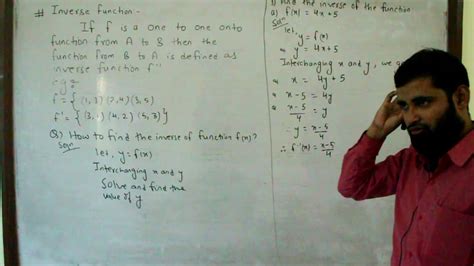 # Inverse function:-
If f is a one to one onto
function from A to B then the
function from B to A is defined as
inverse function f⁻¹
e.g:
f = {(1,3)(2,4)(3,5)
f⁻¹ = {(3,1)(4,2)(5,3)}
Q) How to find the inverse of function f(x)?
Soln
let, y = f(x)
Interchanging x and y
Solve and find the
value of y
1) Find the inverse of the function
a) f(x) = 4x + 5
Soln
let,
y = f(x)
y = 4x + 5
Interchanging x and y, we
x = 4y + 5
x - 5 = 4y
x-5/4 = y
∴ y = x-5/4
∴ f⁻¹(x) = x-5/4